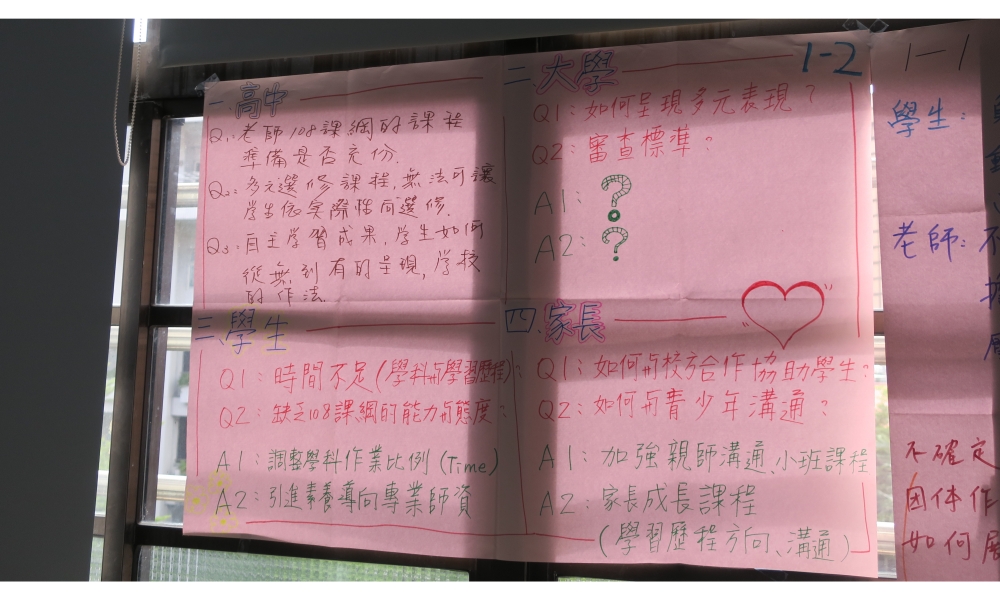 1-2
一.高中
Q1:老師108課綱的課程
準備是否充份.
Q2:多元選修課程,無法可讓
學生依實際性向選修.
Q3:自主學習成果,學生如何
從無到有的呈現,學校
的作法.
二.大學
Q1:如何呈現多元表現?
Q2:審查標準?
A1:?
A2:?
三.學生
Q1:時間不足(學科与學習歷程)
Q2:缺乏108課綱的能力与態度?
A1:調整學科作業比例(Time)
A2:引進素養導向專業師資
四.家長
Q1:如何与校方合作協助學生?
Q2:如何与青少年溝通?
A1:加強親師溝通、小班課程
A2:家長成長課程
(學習歷程方向、溝通)
1-1
學生:
老師:不
不確定
团体作
如何